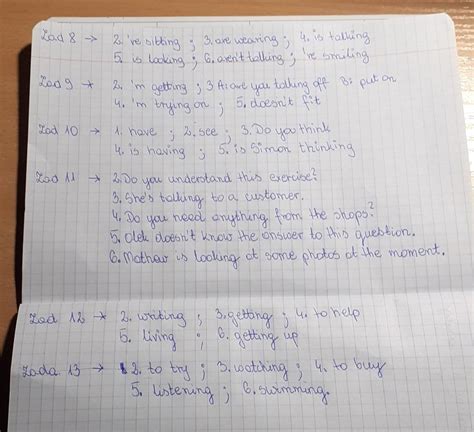 Zad 8 → 2. 're sitting ; 3. are wearing ; 4. is talking
5. is looking ; 6. aren't talking ; 're smiling
Zad 9 → 2. 'm getting ; 3 A: are you talking off B: put on
4. 'm trying on ; 5. doesn't fit
Zad 10 → 1. have ; 2. see ; 3. Do you think
4. is having ; 5. is Simon thinking
Zad 11 → 2. Do you understand this exercise?
3. She's talking to a customer.
4. Do you need anything from the shops?
5. Olek doesn't know the answer to this question.
6. is looking at some photos at the moment.
Zad 12 → 2. writing ; 3. getting ; 4. to help
5. living ; 6. getting up
Zada 13 → 2. to try ; 3. watching ; 4. to buy
5. listening ; 6. swimming.